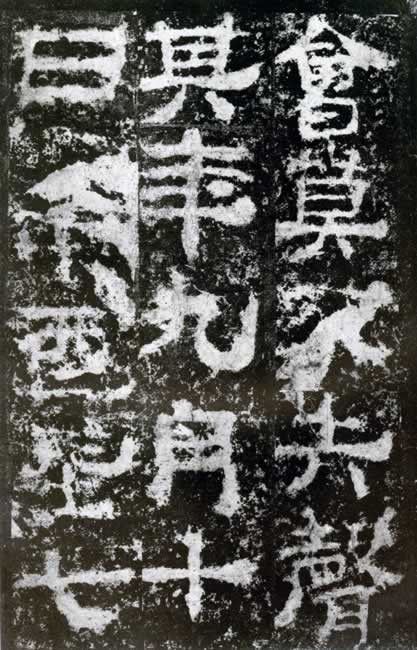 會莫不失聲
其年九月十
日酉七